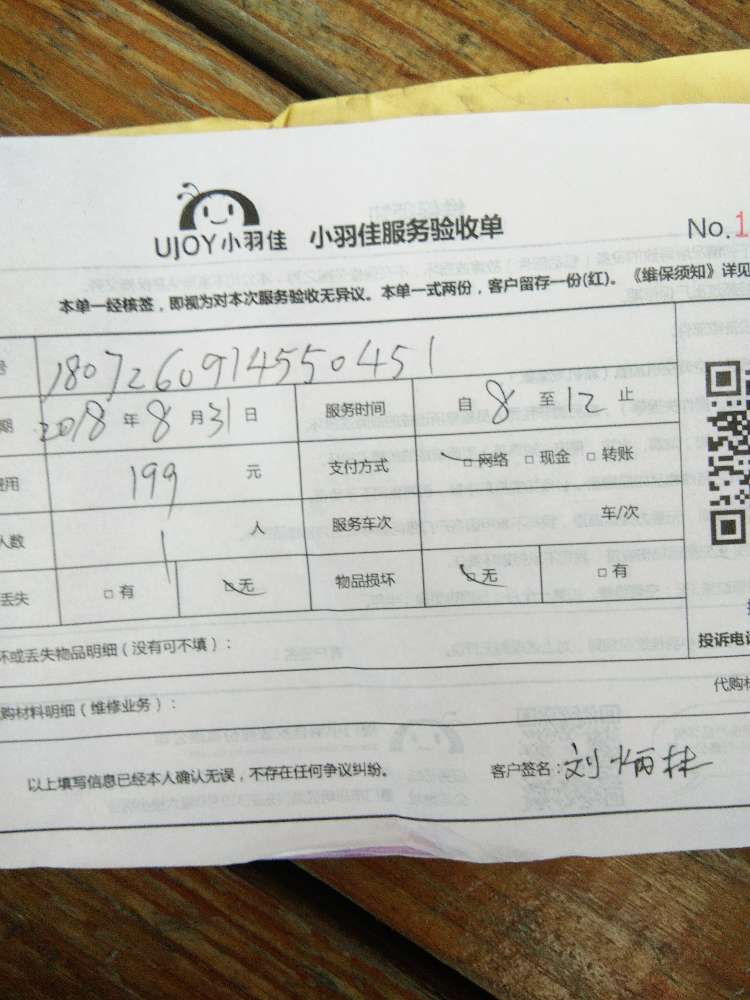 UJOY小羽佳 小羽佳服务验收单 No.1
本单一经核签，即视为对本次服务验收无异议。本单一式两份，客户留存一份(红)。《维保须知》详见
号 18072609145550451
期 2018年8月31日 服务时间 自8至12止
费用 199元 支付方式 □网络 □现金 □转账
人数 1人 服务车次 车/次
丢失 □有 □无 物品损坏 □无 □有
坏或丢失物品明细（没有可不填）： 投诉电话
购材料明细（维修业务）： 代购材
以上填写信息已经本人确认无误，不存在任何争议纠纷。 客户签名：刘炳林